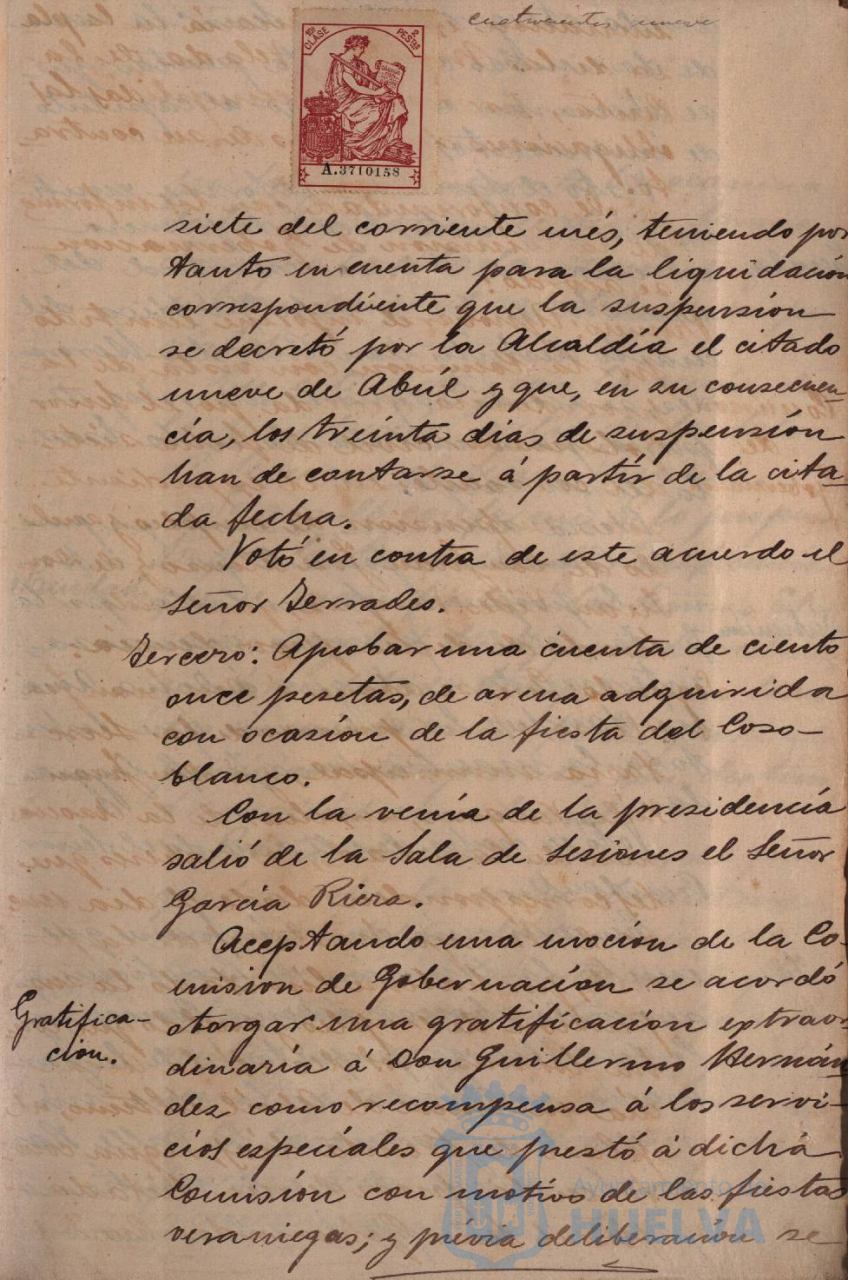 cuatrocientos nueve
10ª CLASE 2 PESTAS
A.3710158
siete del corriente més, teniendo por
tanto en cuenta para la liquidación
correspondiente que la suspensión
se decretó por la Alcaldía el citado
nueve de Abril y que, en su consecuen-
cia, los treinta dias de suspensión
han de contarse á partir de la cita-
da fecha.
Votó en contra de este acuerdo el
Señor Terrades.
Tercero: Aprobar una cuenta de ciento
once pesetas, de arena adquirida
con ocasión de la fiesta del Coso-
blanco.
Con la venia de la presidencia
salió de la Sala de Sesiones el Señor
García Riera.
Aceptando una moción de la Co-
mision de Gobernación se acordó
Gratifica-
ción.
otorgar una gratificación extraor-
dinaria á Don Guillermo Hernán-
dez como recompensa á los servi-
cios especiales que prestó á dicha
Comisión con motivo de las fiestas
veraniegas; y prévia deliberación se
Ayuntamiento de
HUELVA